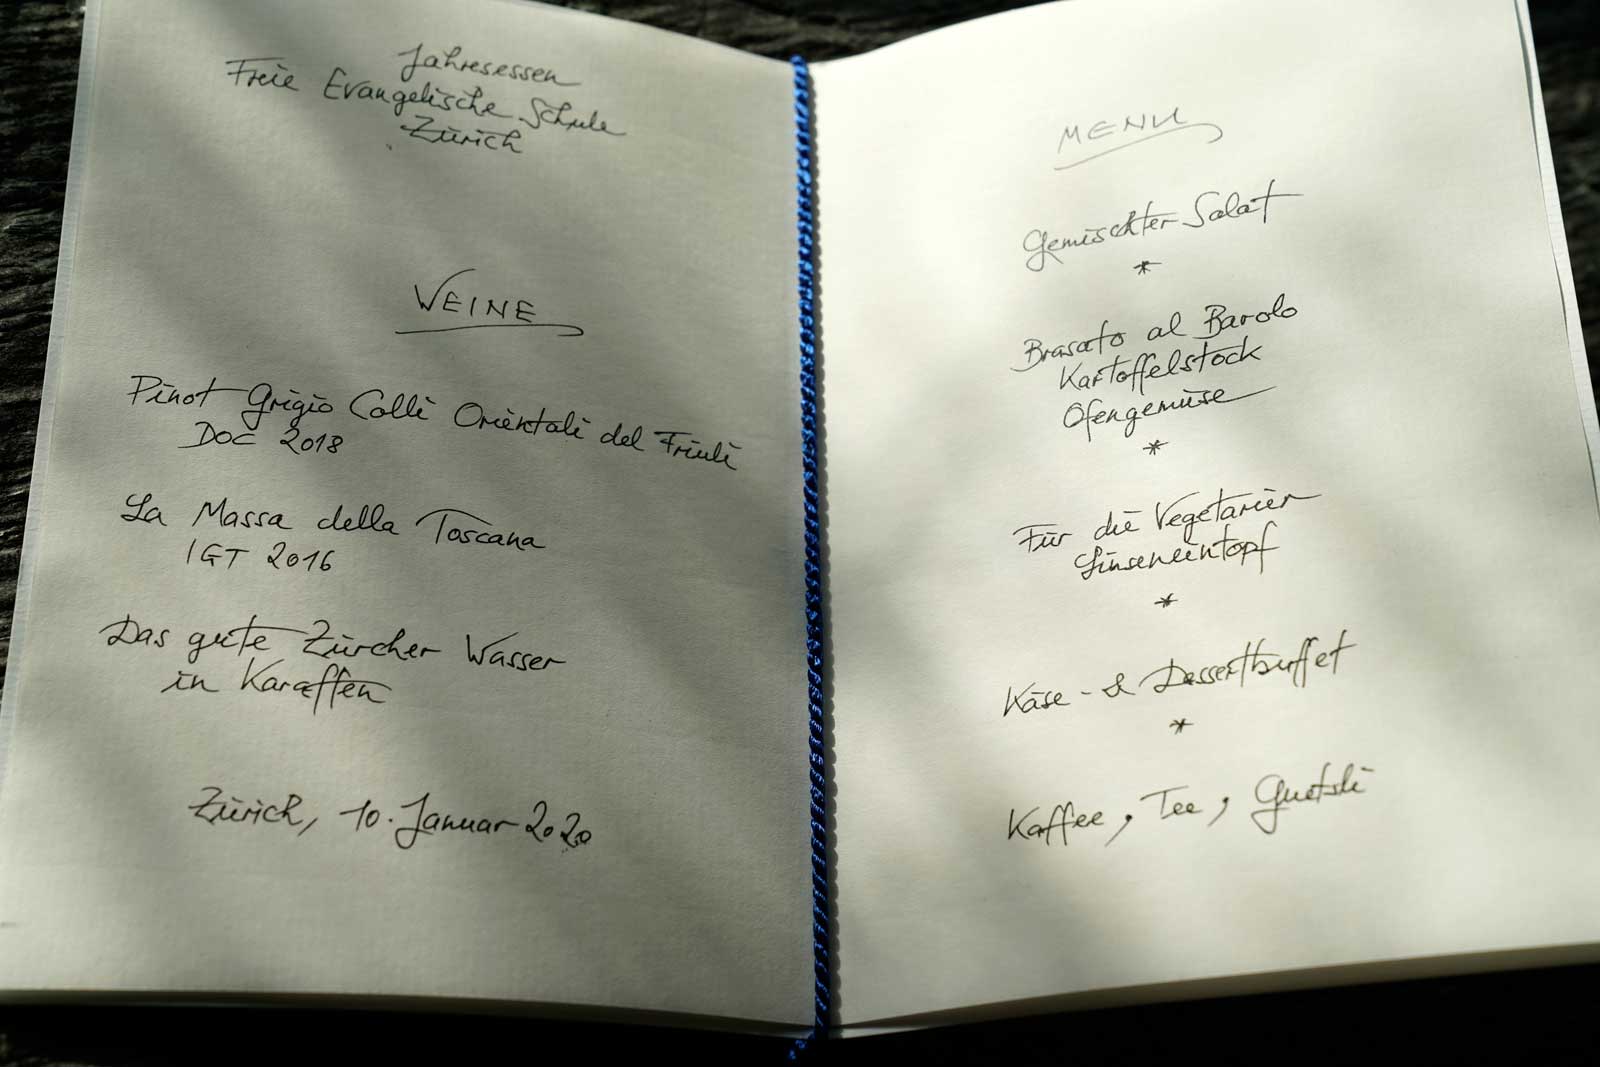 Jahresessen
Freie Evangelische Schule
Zürich
WEINE
Pinot Grigio Colli Orientali del Friuli
DOC 2018
La Massa della Toscana
IGT 2016
Das gute Zürcher Wasser
in Karaffen
Zürich, 10. Januar 2020
MENU
Gemischter Salat
*
Brasato al Barolo
Kartoffelstock
Ofengemüse
*
Für die Vegetarier
Linseneintopf
*
Käse- & Dessertbuffet
*
Kaffee, Tee, Guetsli